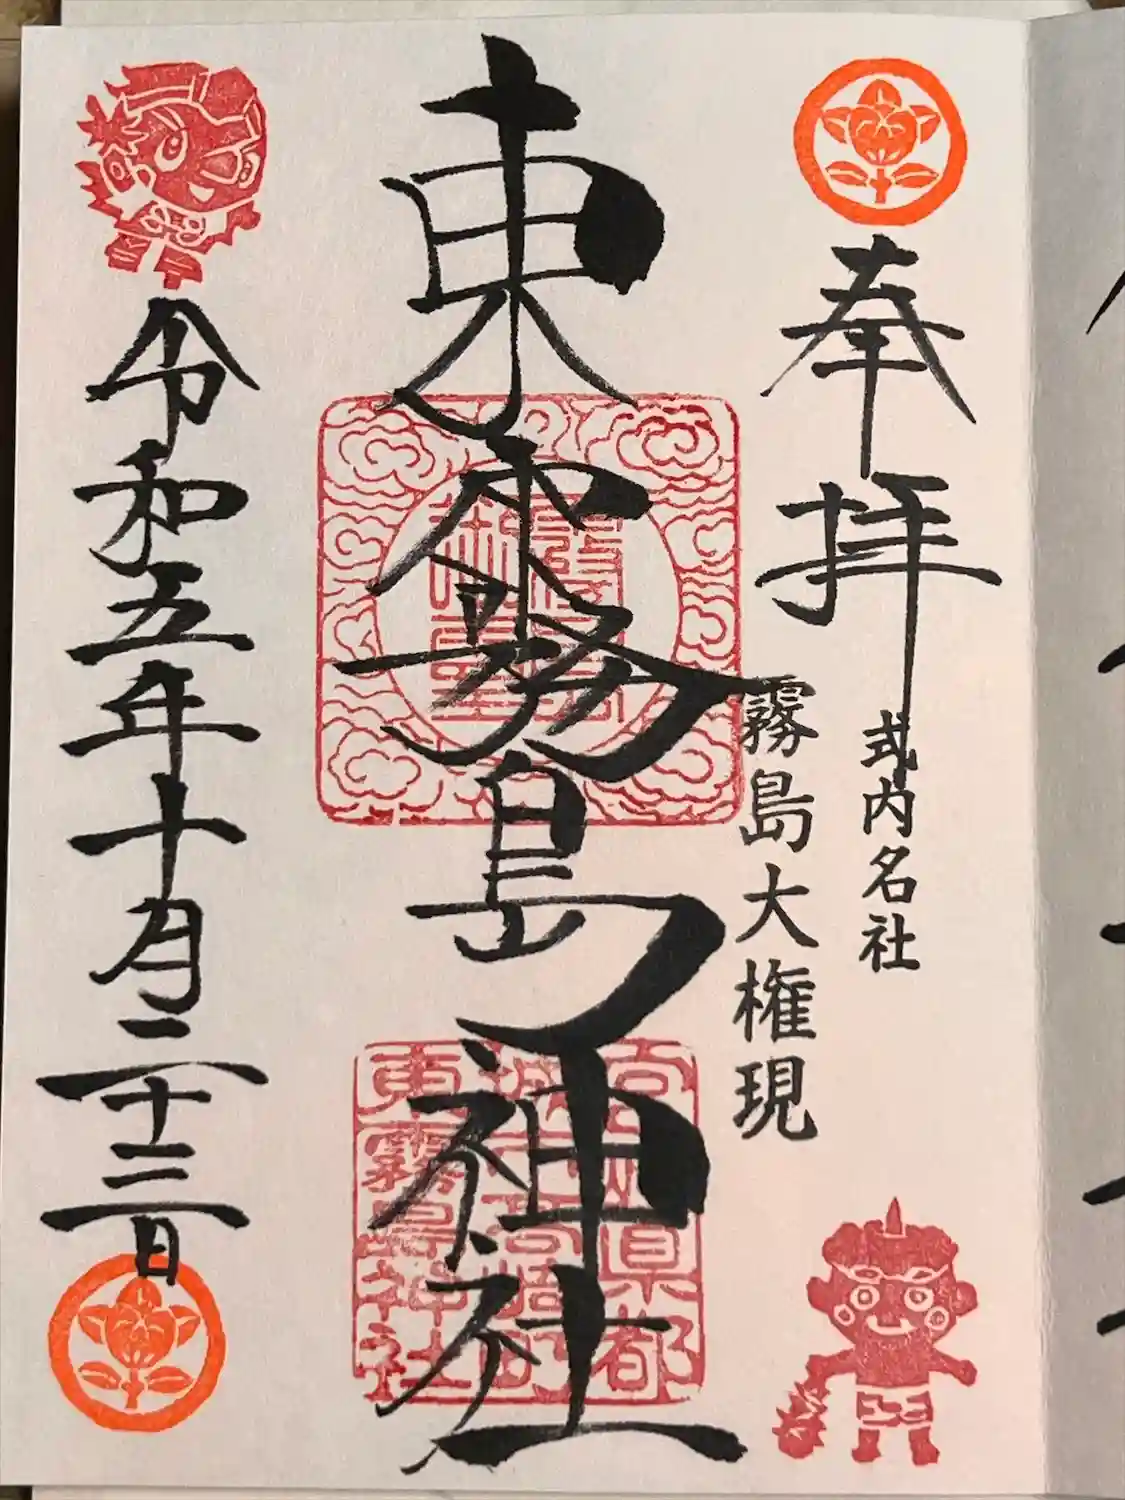 奉拝
式内名社
霧島大権現
東霧島神社
宮崎県都
城市高崎町
東霧島神社
令和五年十月二十三日